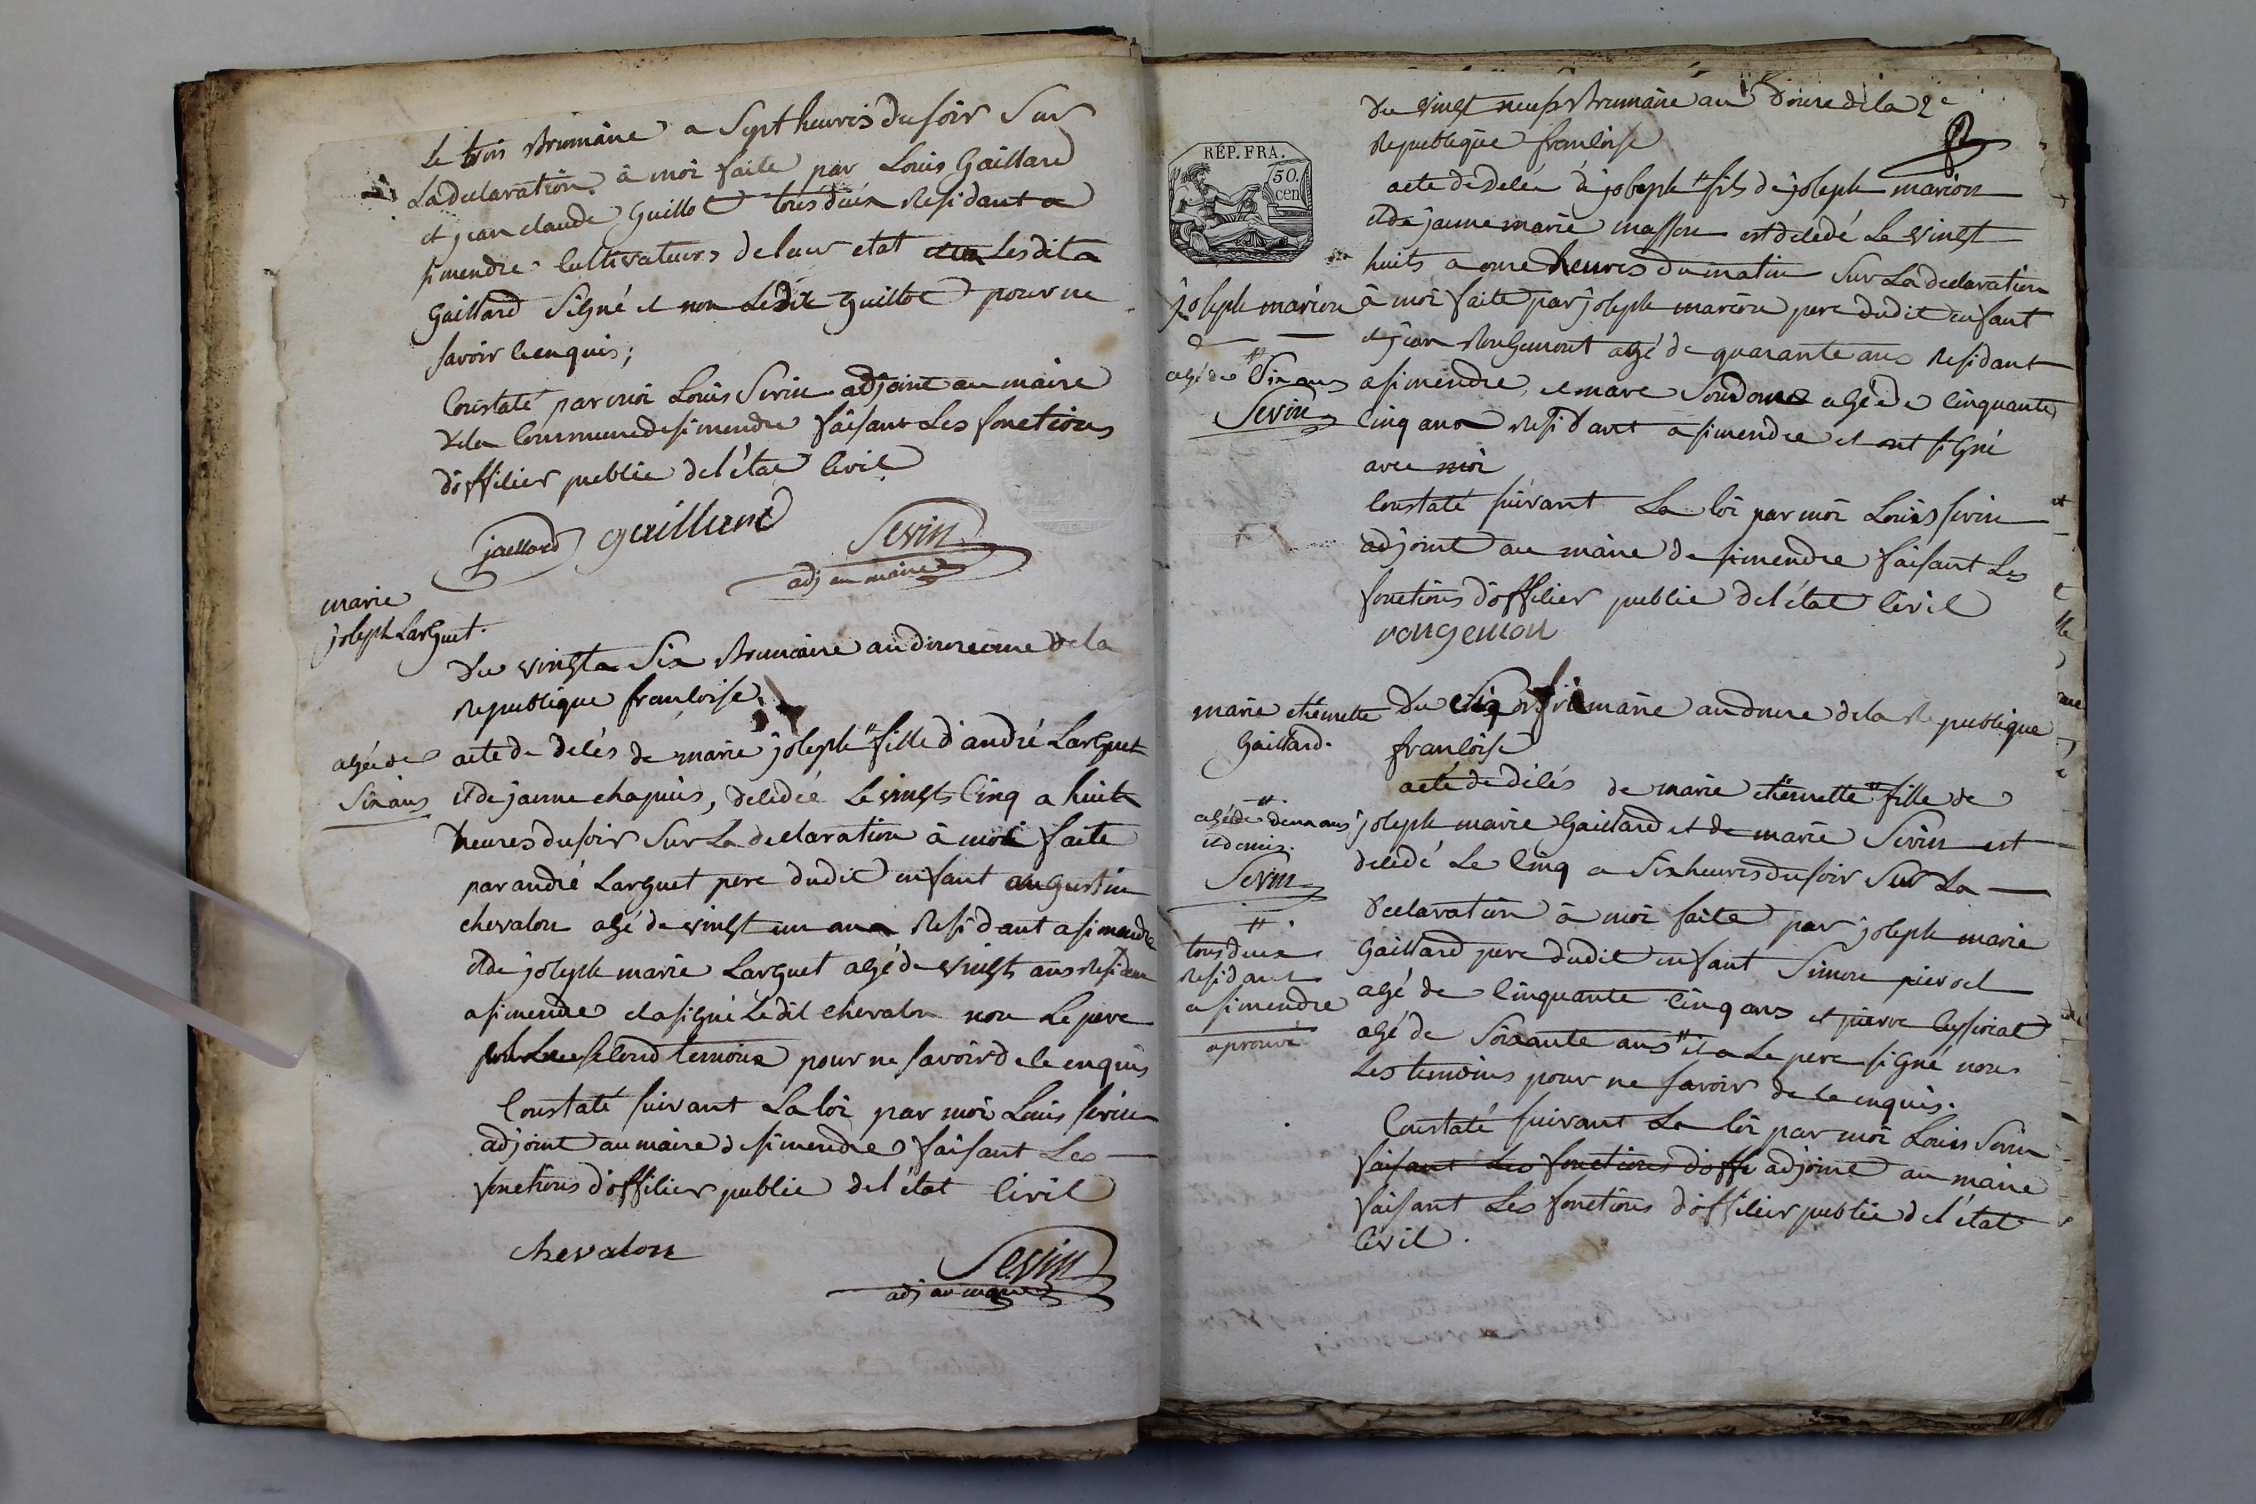 Le trois Brumaire a Sept heures du soir Sur
La declaration à moi faite par Louis Gaillard
et jean claude Guillot tous deux Residant a
simendre Cultivateurs de leur etat Lesdit
Gaillard Signé et non Ledit Guillot pour ne
savoir ce enquis;
Constaté par moi Louis Sevin adjoint au maire
de la Commune de simendre faisant Les fonctions
d'officier public de l'état Civil
gaillard
Sevin
adj au maire
marie
joseph Larguet.
Du vingta Six Brumaire an douzieme de la
Republique francoise
acte de délés de marie joseph # fille d'andré Larguet
et de janne chapuis, deledée Le vingts Cinq a huit
heures du soir Sur La declaration à moi faite
par andré Larguet pere dudit enfant augustin
chevalon agé de vingt un ans Resident a simendre
et de joseph marie Larguet agé de vingts ans Resident
a simendre et a signé Ledit chevalon non Le pere
Second temoins pour ne savoir de ce enquis
agée de
Six ans
Constaté suivant La loi par moi Louis Sevin
adjoint au maire de simendre faisant Les
fonctions d'officier public de l'état Civil
chevalon
Sevin
adj au maire
RÉP. FRA.
50.
cen
Du vingt neuf Brumaire an Douze de la 2e
Republique francoise
acte de delée de joseph # fils de joseph marion
et de janne marie masson est deledé Le vingt
huits a onze heures du matin Sur La declaration
à moi faite par joseph marion pere dudit enfant
et jean Rongemont agé de quarante ans Residant
a simendre, et marc agé de Cinquante
Cinq ans Residant a simendre et ont signé
avec moi
joseph marion
#
agé de Six ans
Sevin
Constaté suivant La loi par moi Louis Sevin
adjoint au maire de simendre faisant Les
fonctions d'officier public de l'état Civil
rongemon
marie etiennette
Gaillard.
Du frimaire an douze de la Republique
francoise
acte de délés de marie etiennette # fille de
joseph marie Gaillard et de marie Sevin est
deledé Le Cinq a Six heures du soir Sur La
declaration à moi faite par joseph marie
Gaillard pere dudit enfant Simon
agé de Cinquante Cinq ans et pierre
agé de Soixante ans # et a Le pere signé non
Les temoins pour ne savoir de ce enquis.
#
agée de deux ans
et demis.
Sevin
#
tous deux
Residant
a simendre
aprouvé
Constaté suivant La loi par moi Louis Sevin
faisant Les fonctions d'offi adjoint au maire
faisant Les fonctions d'officier public de l'état
Civil.